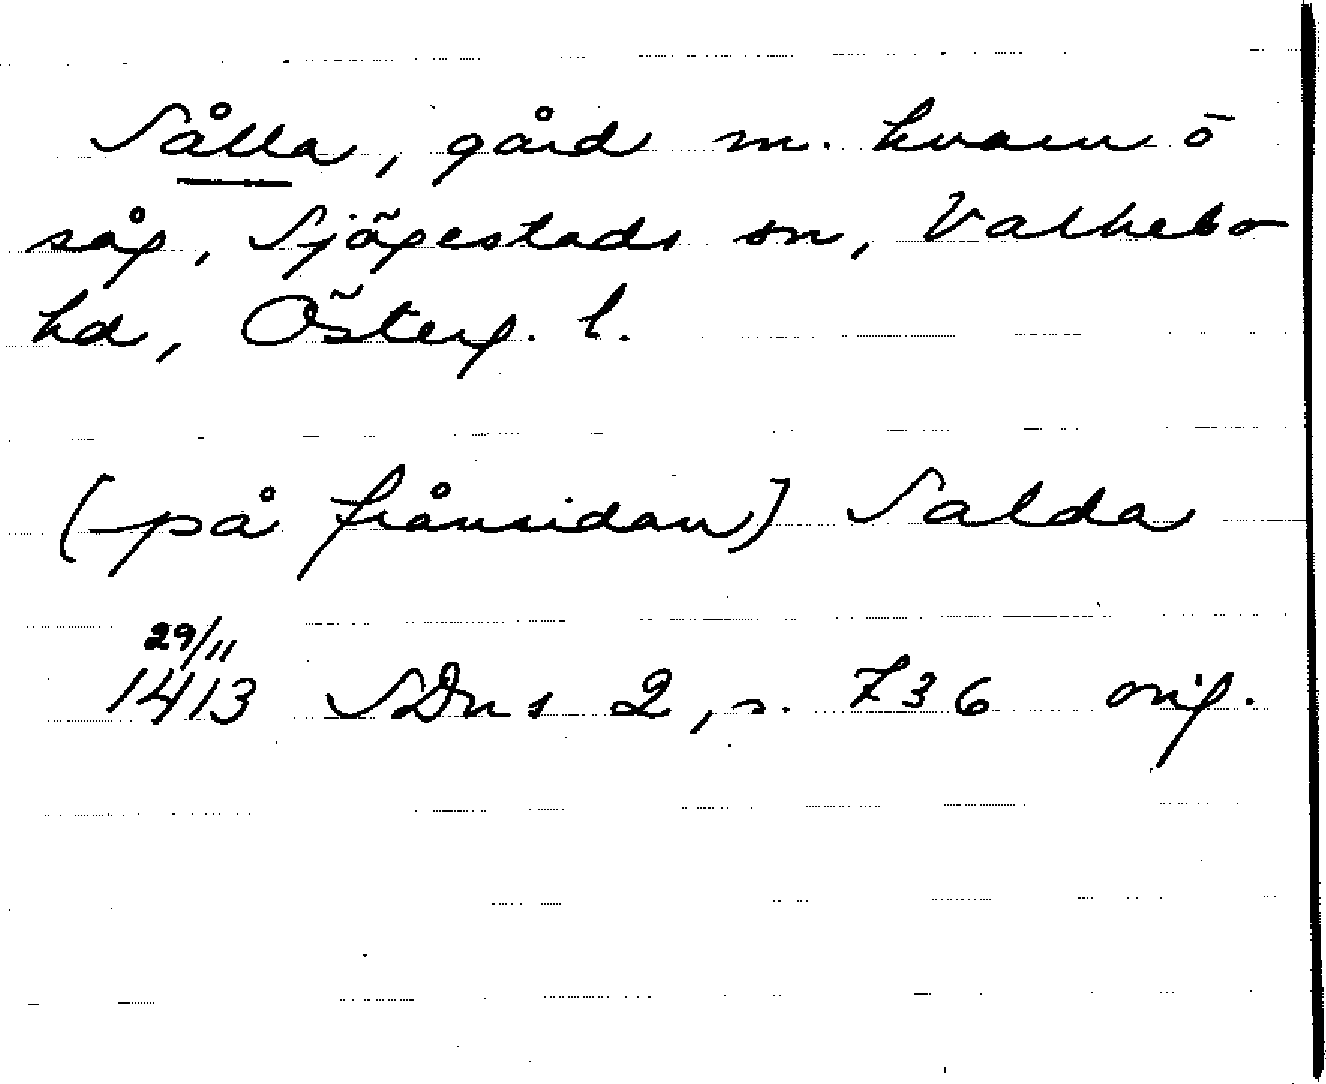 Sålla, gård m. kvarn o
såg, Sjögestads sn, Valkebo
hd, Österg. l.
(på frånsidan) Salda
29/11
1413 SDns 2, s. 736 orig.